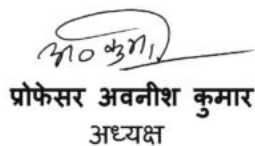 अ० कुमार
प्रोफेसर अवनीश कुमार
अध्यक्ष